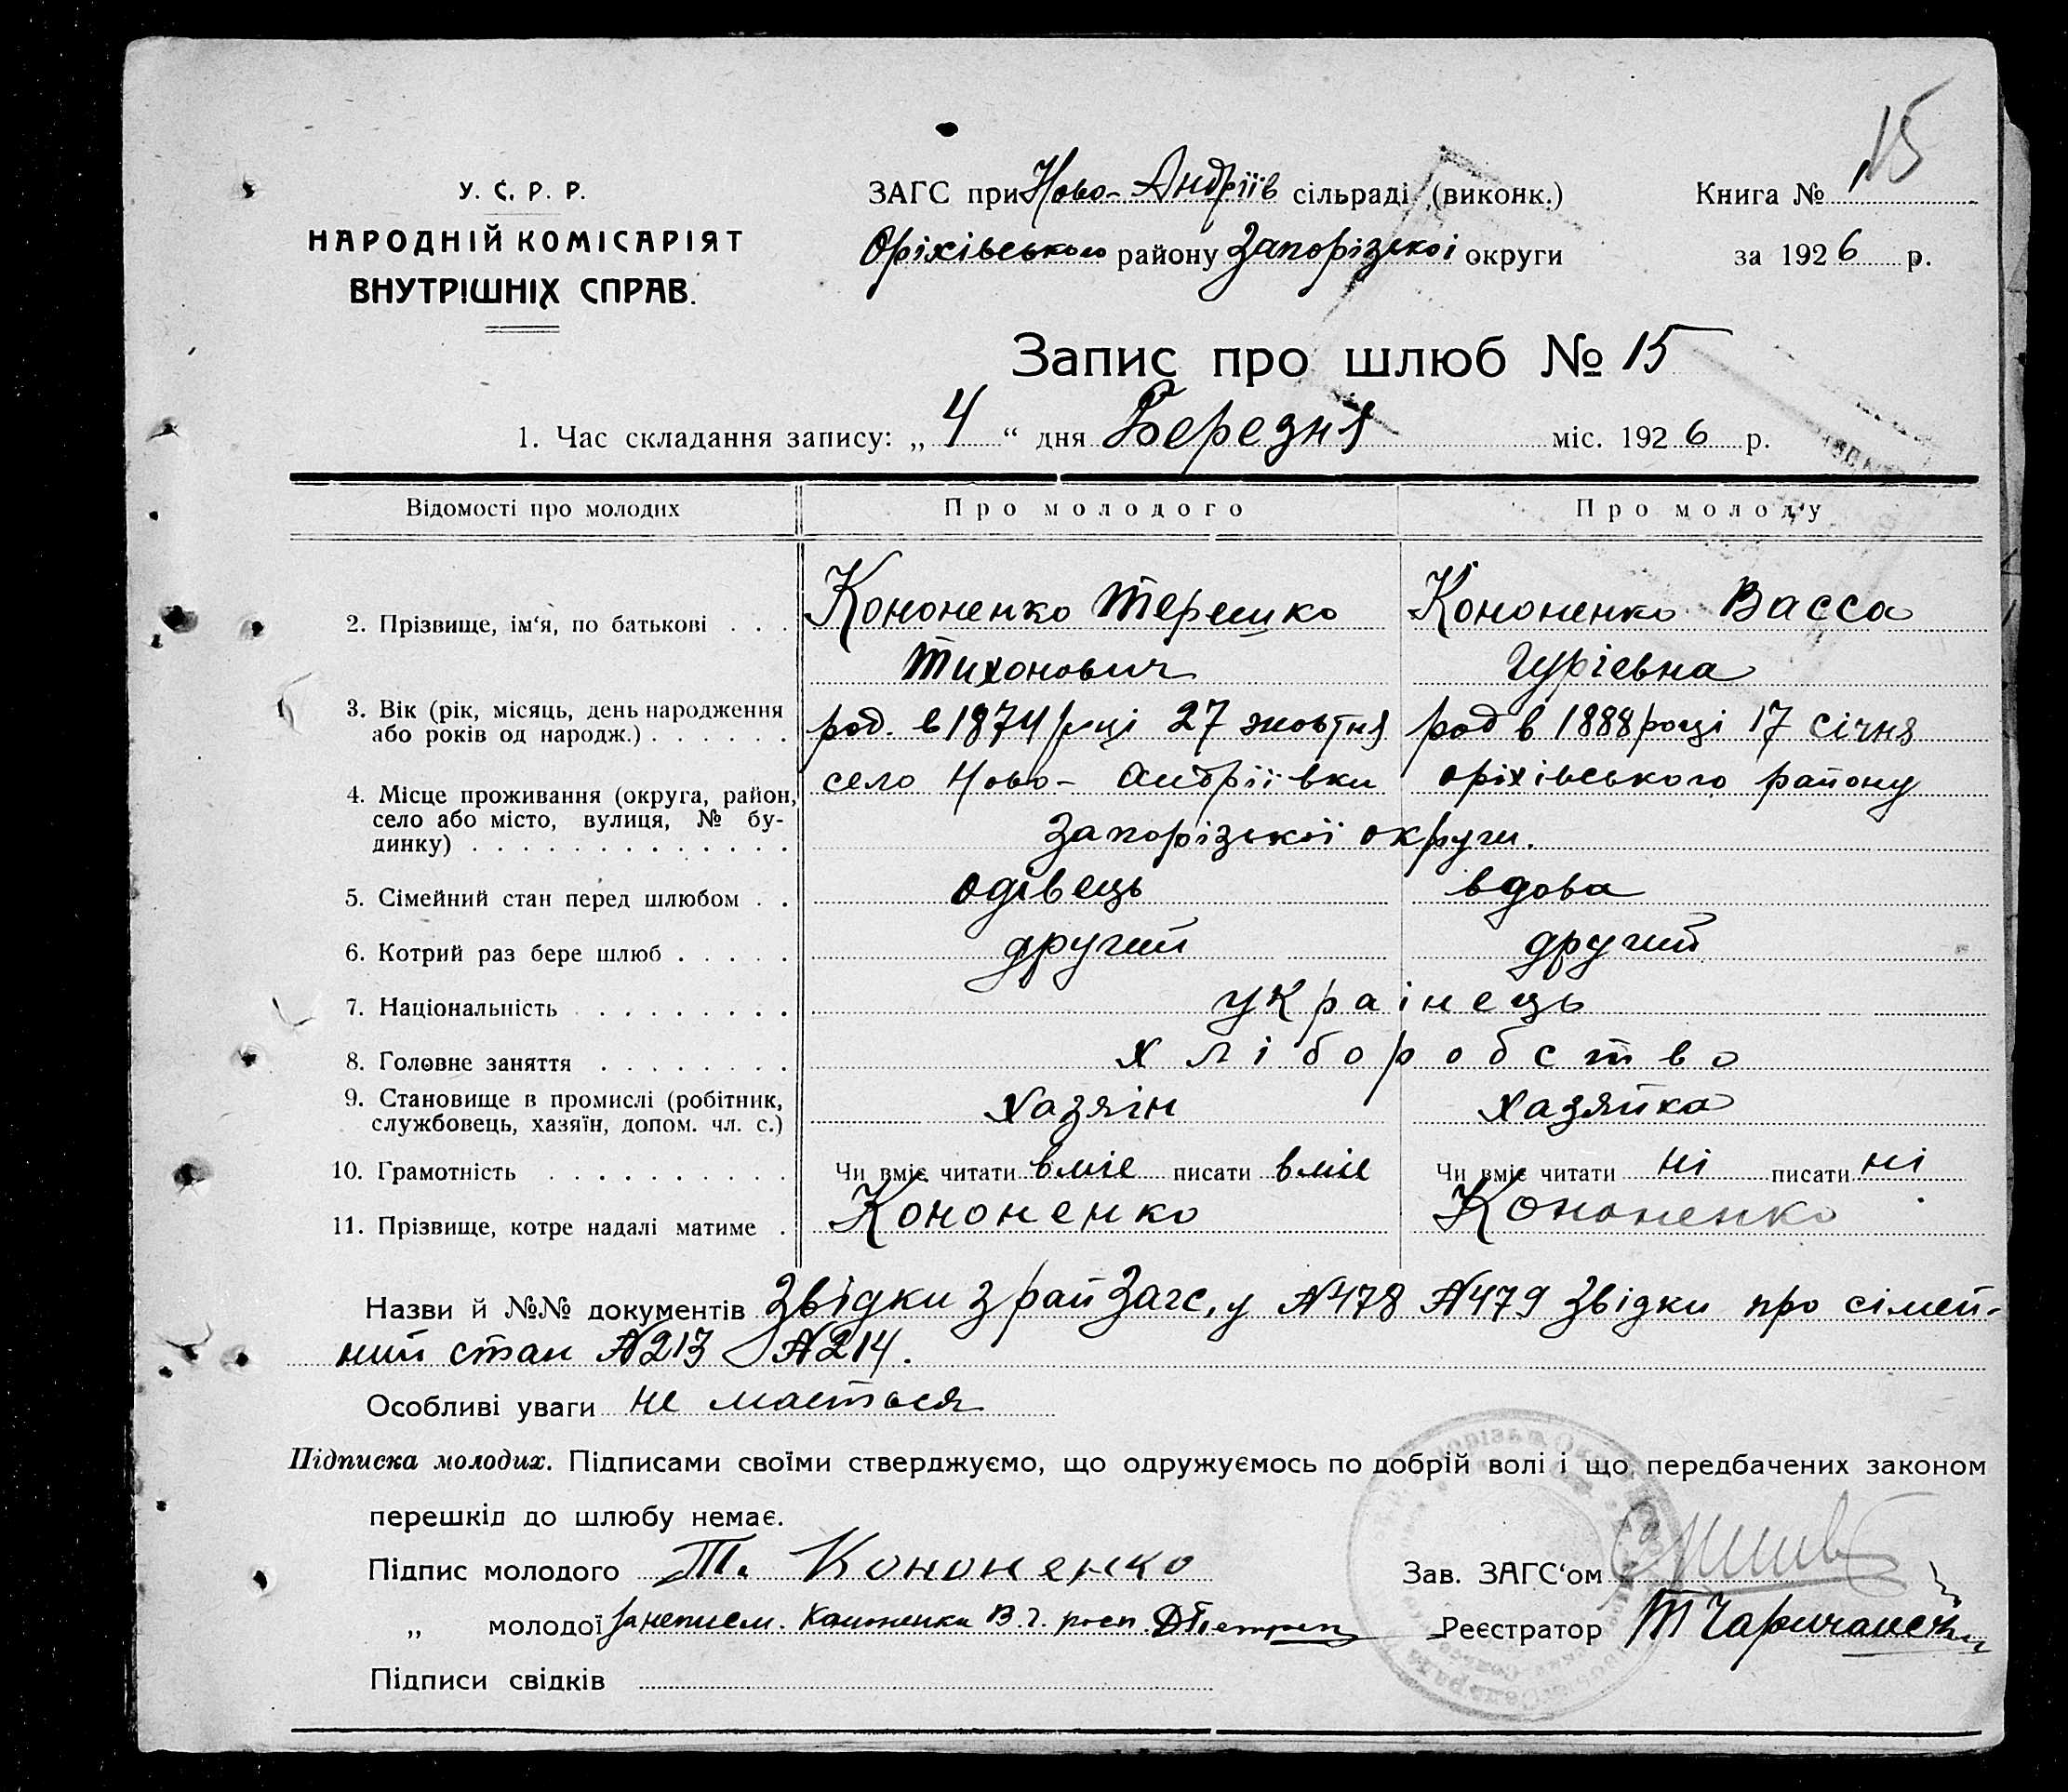 15
У. С. Р. Р.
НАРОДНІЙ КОМІСАРІЯТ
ВНУТРІШНІХ СПРАВ.
ЗАГС при Ново-Андріїв сільраді (виконк.)
Оріхівського району Запорізської округи
Книга №
за 1926 р.
Запис про шлюб № 15
1. Час складання запису: „ 4 “ дня Березня міс. 1926 р.
Відомості про молодих Про молодого Про молоду
2. Прізвище, ім‘я, по батькові . . . Кононенко Терешко Кононенко Васса
Тихонович Гуріевна
3. Вік (рік, місяць, день народження
або років од народж.) . . . . . . род. в 1874 році 27 жовтня род в 1888 році 17 січня
4. Місце проживання (округа, район, село Ново-Андріївки оріхівського району
село або місто, вулиця, № бу-
динку) . . . . . . . . . . . . . запорізької округи.
5. Сімейний стан перед шлюбом . . одівець вдова
6. Котрий раз бере шлюб . . . . . другий другий
7. Національність . . . . . . . . . українець
8. Головне заняття . . . . . . . . хліборобство
9. Становище в промислі (робітник,
службовець, хазяїн, допом. чл. с.) хазяін хазяйка
10. Грамотність . . . . . . . . . . Чи вміє читати вміе писати вміе Чи вміє читати ні писати ні
11. Прізвище, котре надалі матиме . Кононенко Кононенко
Назви й №№ документів Звідки з райЗагс,у №478 №479 Звідки про сімей-
ний стан №213 №214.
Особливі уваги не маеться
Підписка молодих. Підписами своїми стверджуємо, що одружуємось по добрій волі і що передбачених законом
перешкід до шлюбу немає.
Підпис молодого Т. Кононенко
Зав. ЗАГС‘ом
„ молодої за неписм. Кононенки В. Г. росп.
Реєстратор
Підписи свідків